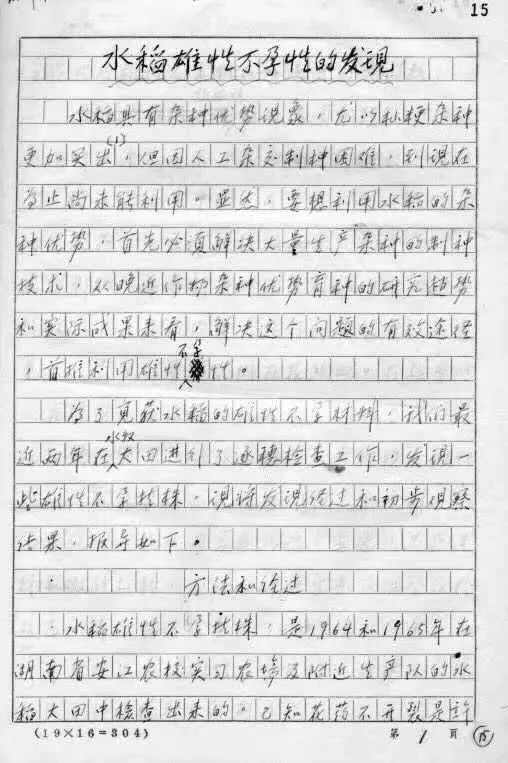 15
水稻雄性不孕性的发现
水稻具有杂种优势现象，尤以籼粳杂种
更加突出(1)，但因人工杂交制种困难，到现在
为止尚未能利用。显然，要想利用水稻的杂
种优势，首先必须解决大量生产杂种的制种
技术，从晚近作物杂种优势育种的研究趋势
和实际成果来看，解决这个问题的有效途径
，首推利用雄性不孕性。
为了克获水稻的雄性不孕材料，我们最
近两年在水稻大田进行了逐穗检查工作，发现一
些雄性不孕植株，现将发现经过和初步观察
结果，报导如下。
方法和经过
水稻雄性不孕植株，是1964和1965年在
湖南省安江农校实习农场及附近生产队的水
稻大田中检查出来的。已知花药不开裂是许
(19×16=304)
第 1 頁
15